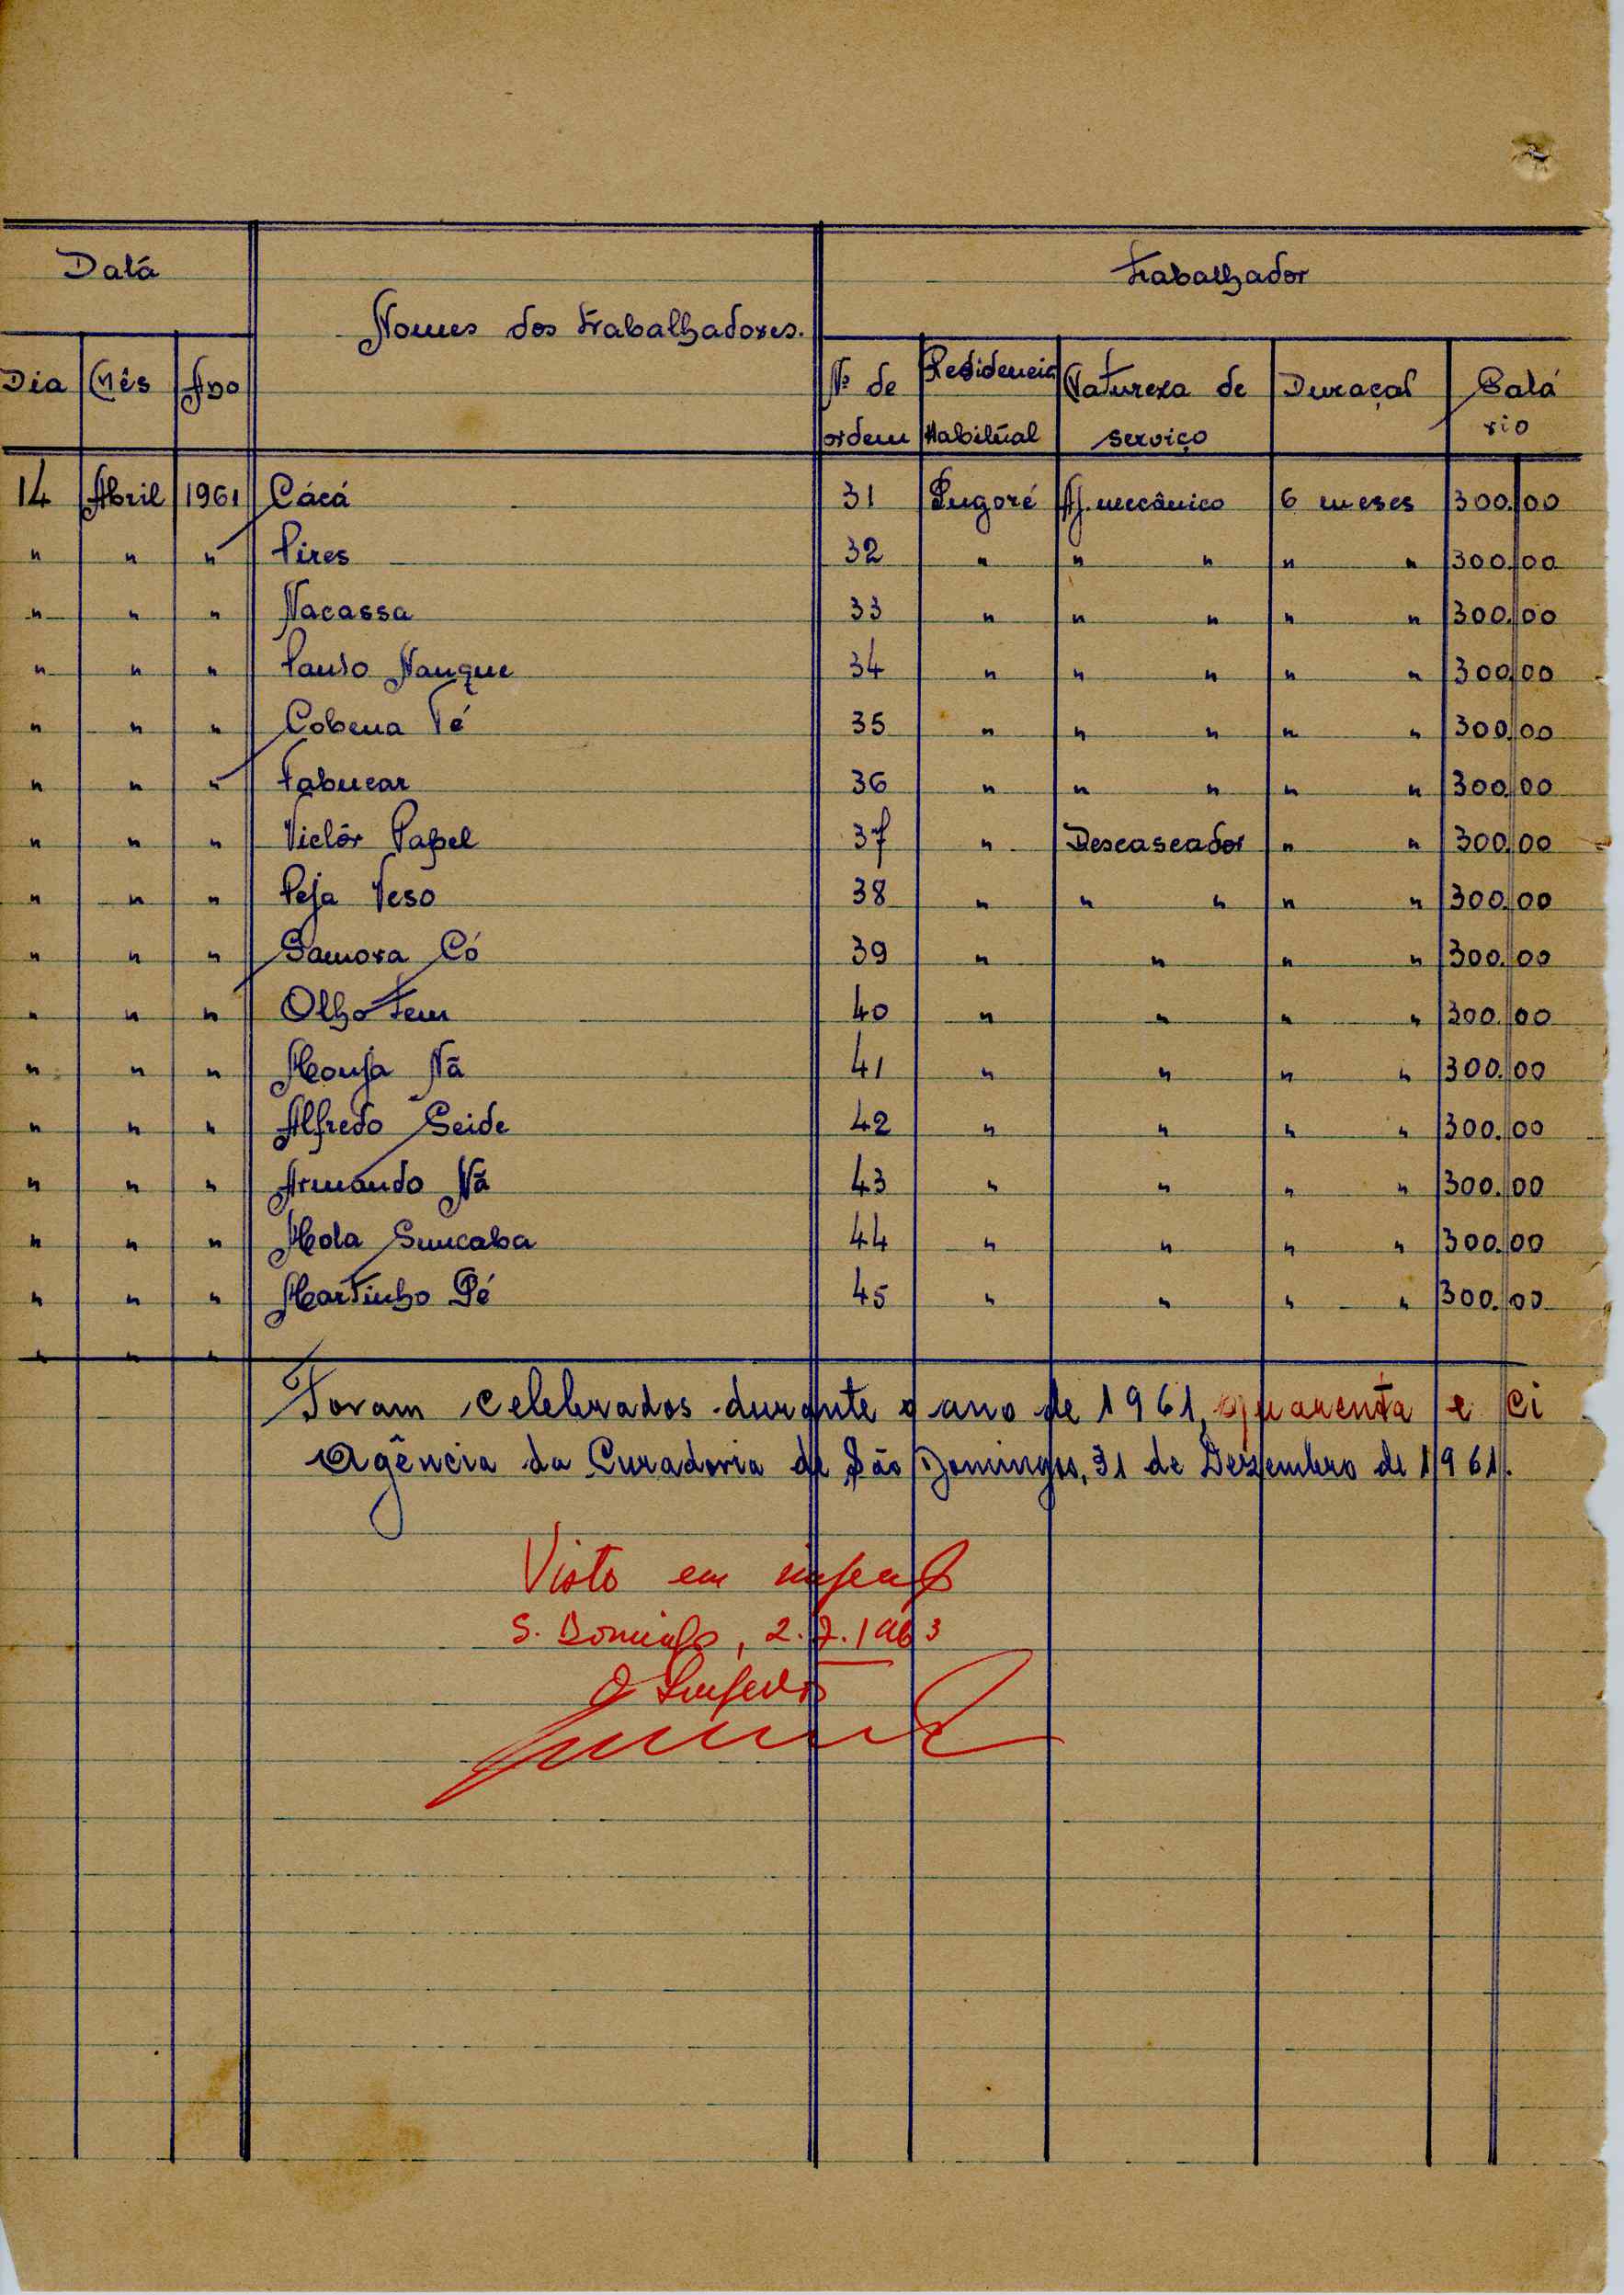 Datá Trabalhador
Nomes dos Trabalhadores.
Dia Mês Ano Nº de ordem Residencia Habitual Natureza de serviço Duraçaõ Salário
14 Abril 1961 Cácá 31 Pugoré Aj. mecânico 6 meses 300,00
" " " Pires 32 " " " " " 300,00
" " " Nacassa 33 " " " " " 300,00
" " " Paulo Nanque 34 " " " " " 300,00
" " " Cobena Té 35 " " " " " 300,00
" " " Tabucar 36 " " " " " 300,00
" " " Victôr Papel 37 " Descascador " " 300,00
" " " Peja Veso 38 " " " " " 300,00
" " " Samora Có 39 " " " " 300,00
" " " Olho Tem 40 " " " " 300,00
" " " Monja Nã 41 " " " " 300,00
" " " Alfredo Seide 42 " " " " 300,00
" " " Armando Nã 43 " " " " 300,00
" " " Mola Suncaba 44 " " " " 300,00
" " " Martinho Pé 45 " " " " 300,00
" " "
Foram celebrados durante o ano de 1961, quarenta e ci
Agência da Curadoria de São Domingos, 31 de Dezembro de 1961.
Visto em
S. Domingos, 2.7.1963
O